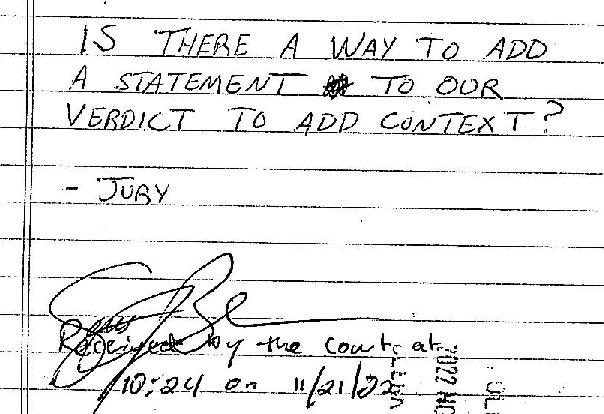 IS THERE A WAY TO ADD
A STATEMENT TO OUR
VERDICT TO ADD CONTEXT?
- JURY
Received by the court at
10:24 on 11/21/22
2022 NO